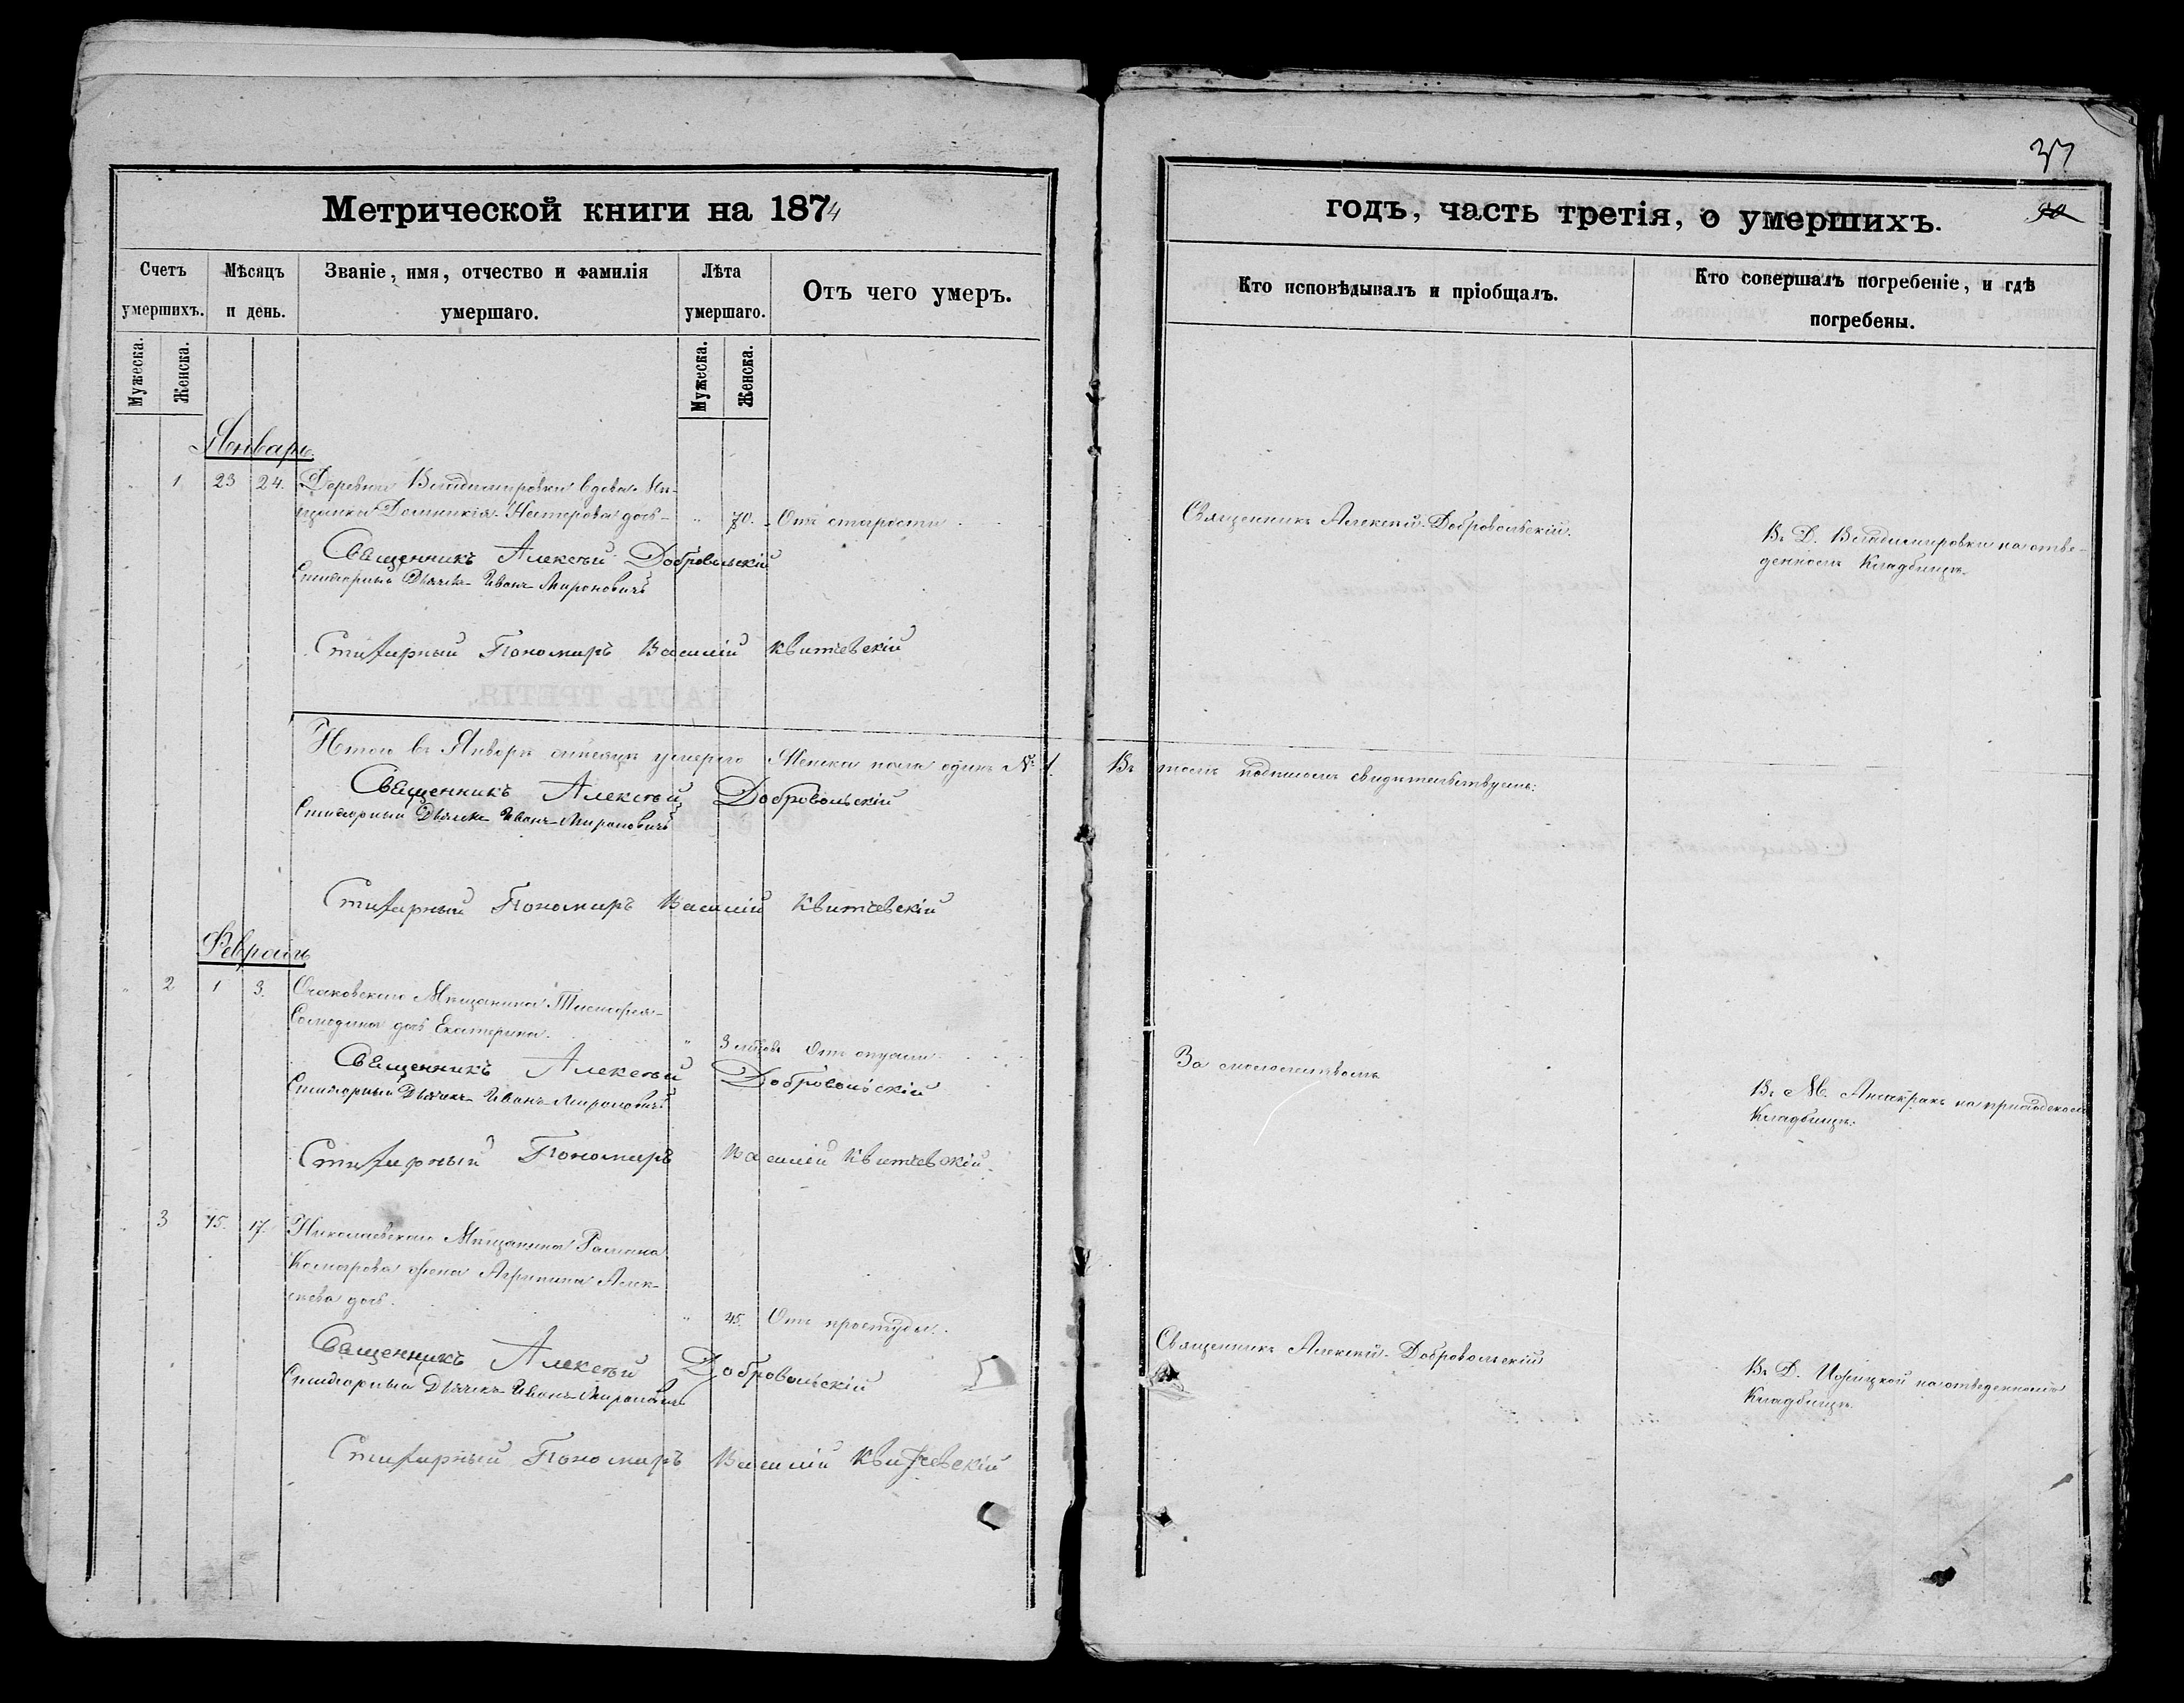 37
Метрической книги на 1874
годъ, часть третія, о умершихъ.
90
Счетъ умершихъ.
Мѣсяцъ и день.
Званіе, имя, отчество и фамилія умершаго.
Лѣта умершаго.
Отъ чего умеръ.
Кто исповѣдывалъ и пріобщалъ.
Кто совершалъ погребеніе, и гдѣ погребены.
Мужеска.
Женска.
Мужеска.
Женска.
Январь.
1 23 24. Деревни Владимировки вдова Мѣ-
щанка Домникія Нестерова доч- " 70. Отъ старости.
Священникъ Алексѣй Добровольскій.
Въ Д. Владимировки на отве-
денномъ Кладбищѣ.
Священникъ Алексѣй Добровольскій
Стихарный Дьячекъ Иванъ Мироновичъ
Стихарный Пономарь Василій Квитчевскій
Итого въ Январѣ мѣсяцѣ умерло Женска пола одинъ № 1. Въ томъ подписомъ свидѣтельствуемъ:
Священникъ Алексѣй Добровольскій
Стихарный Дьячекъ Иванъ Мироновичъ
Стихарный Пономарь Василій Квитчевскій
Февраль
" 2 1 3. Очаковскаго Мѣщанина
дочь Екатерина. " 3 Отъ
За
Въ М. на приходскомъ
Кладбищѣ.
Священникъ Алексѣй Добровольскій
Стихарный Дьячекъ Иванъ Мироновичъ
Стихарный Пономарь Василій Квитчевскій.
" 3 15. 17. Николаевскаго Мѣщанина Романа
Комарова жена Агрипина Алек-
сѣева доч. " 45. Отъ простуды.
Священникъ Алексѣй Добровольскій
Въ Д. на отведенномъ
Кладбищѣ.
Священникъ Алексѣй Добровольскій
Стихарный Дьячекъ Иванъ Мироновичъ
Стихарный Пономарь Василій Квитчевскій